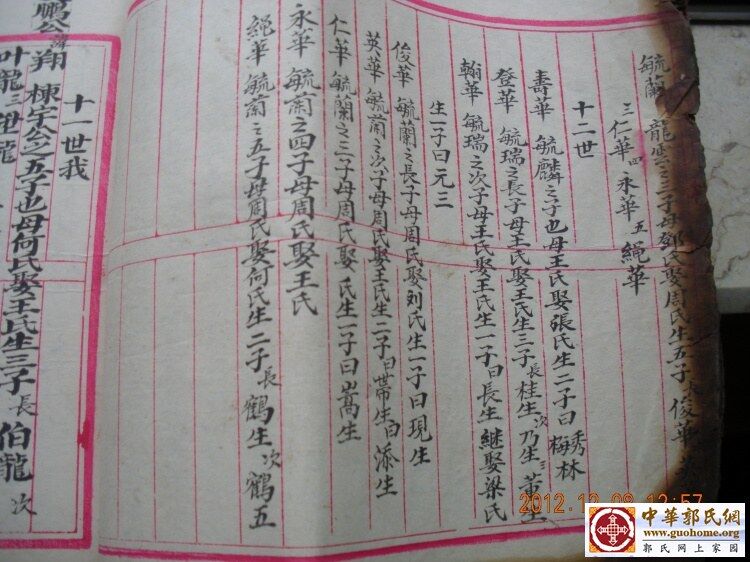 毓蘭 龍雲之三子母鄧氏娶周氏生五子長俊華
三仁華四永華五繩華
十二世
壽華 毓麟之子也母王氏娶張氏生二子曰秀林梅
登華 毓瑞之長子母王氏娶王氏生三子長桂生次乃生三董生
翰華 毓瑞之次子母王氏娶王氏生一子曰長生 継娶梁氏
生一子曰元三
俊華 毓蘭之長子母周氏娶刘氏生一子曰現生
英華 毓蘭之次子母周氏娶王氏生二子曰帶生曰添生
仁華 毓蘭之三子母周氏娶 氏生一子曰嵩生
永華 毓蘭之四子母周氏娶王氏
繩華 毓蘭之五子母周氏娶何氏生二子長鶴生次鶴五
十一世我
鵬公諱翔 棟宇公之五子也母何氏娶王氏生三子長伯龍次
叶龍三
2012.12.08 12:57
中華郭氏網
www.guohome.org
郭氏网上家园